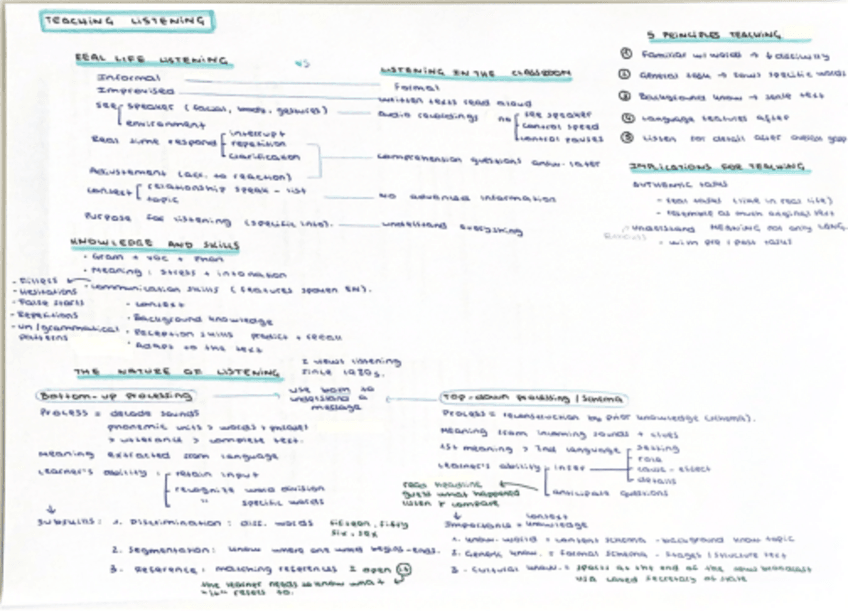 TEACHING LISTENING
REAL LIFE LISTENING
vs
LISTENING IN THE CLASSROOM
Informal
Formal
Improvised
written texts read aloud
see speaker (facial, body, gestures)
environment
audio recordings no see speaker
control speed
control pauses
Real time respond interrupt
repetition
clarification
comprehension questions answ. later
Adjustement (acc. to reaction)
context relationship speak - list
topic
No advanced information
Purpose for listening (specific info).
understand everything
KNOWLEDGE AND SKILLS
· Gram + voc + phon
· Meaning: stress + intonation
· Communication skills (features spoken EN).
- Fillers
- Hesitations
- False starts
- Repetitions
- un/grammatical patterns
· context
· Background knowledge
· Reception skills predict + recall
· Adapt to the text
5 PRINCIPLES TEACHING
① Familiar w/ words → difficulty
② General task → specific words
③ Background know → text
④ Language features after
⑤ Listen for detail after
IMPLICATIONS FOR TEACHING
AUTHENTIC TASKS
- real tasks (like in real life)
- resemble as much original text
- understand MEANING not only LANG.
- with pre / post tasks
THE NATURE OF LISTENING
2 views listening since 1980s.
Bottom-up processing
use both to understand a message
Top-down processing / Schema
Process = decode sounds
phonemic units > words > phrases
> utterance > complete text.
Meaning extracted from language
Learner's ability: retain input
recognize word division
" specific words
Subskills: 1. Discrimination: disc. words fifteen, fifty
six, sex
2. Segmentation: know where one word begins - ends.
3. Reference: matching references I open it
the learner needs to know what
"it" refers to.
Process = reconstruction by prior knowledge (schema).
Meaning from incoming sounds + clues
1st meaning > 2nd language
Learner's ability infer
setting
role
cause - effect
details
anticipate questions
read headline
guess what happened
listen + compare
context
Importance knowledge
1. know. world = content schema - background know topic
2. Generic know. = formal schema - stages / structure text
3. Cultural know. = sports at the end of the news broadcast
USA called Secretary of State